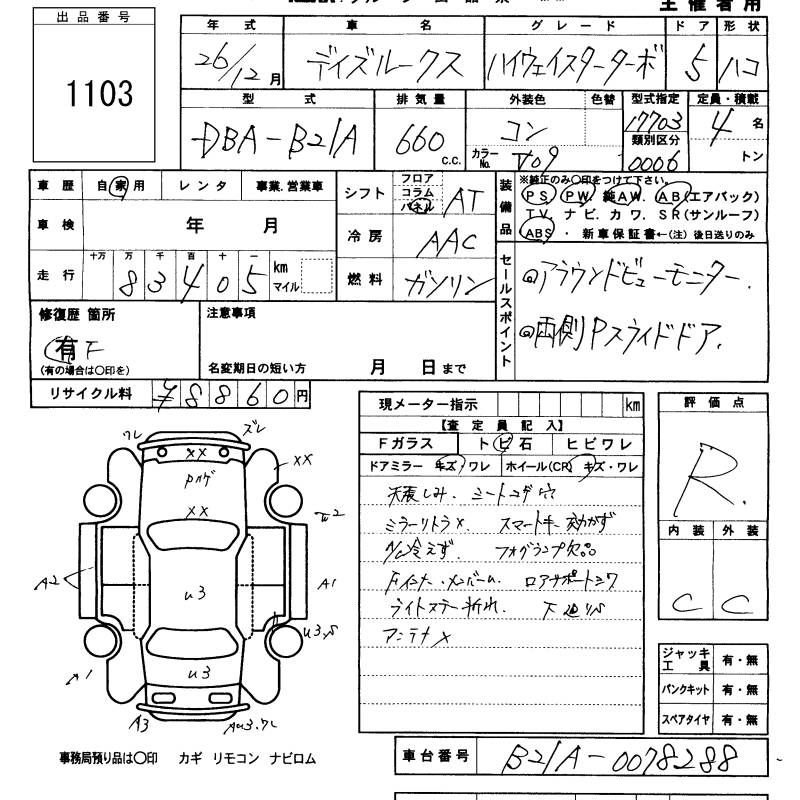 主催者用
出品番号
1103
年式 車名 グレード ドア 形状
26/12月 デイズルークス ハイウェイスターターボ 5 ハコ
型式 排気量 外装色 色替 型式指定 定員・積載
DBA-B21A 660 c.c. コン カラーNo. V09 17703 4名
類別区分 0006 トン
車歴 自家用 レンタ 事業.営業車
シフト フロア コラム パネル AT
装備品 ※純正のみ○印をつけて下さい。
PS. PW. 純AW. AB(エアバック)
TV. ナビ. カワ. SR(サンルーフ)
ABS ・ 新車保証書←(注) 後日送りのみ
車検 年 月
冷房 AAC
走行 十万 万 千 百 十 一
83405 km マイル
燃料 ガソリン
セールスポイント
◎アラウンドビューモニター.
◎両側Pスライドドア.
修復歴 箇所
有 F
(有の場合は○印を)
注意事項
名変期日の短い方 月 日まで
リサイクル料 ¥8860円
現メーター指示 km
【査定員記入】
Fガラス トビ石 ヒビワレ
ドアミラー キズ/ワレ ホイール(CR) キズ・ワレ
天張しみ. シートコゲ穴
ミラーリトラ× スマートキー効かず
A/C冷えず. フォグランプ欠品
Fインナー.メンバーム. ロアサポートシワ
ライトステー折れ. 下廻りS
アンテナ×
評価点
R.
内装 外装
C C
ワレ ズレ
××
Pカゲ
××
××
A2
A1
u3
u3.S
A1
u3
A3
Au3.ワレ
ジャッキ工具 有・無
パンクキット 有・無
スペアタイヤ 有・無
事務局預り品は○印 カギ リモコン ナビロム
車台番号 B21A-0078288